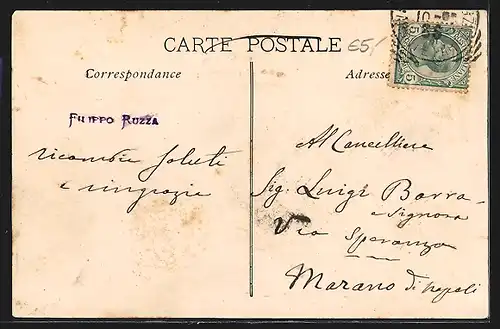 CARTE POSTALE
£5/
Correspondance
Adresse
5 5
FILIPPO RUZZA
ricambia saluti
e ringrazia
Al Cancelliere
Sig. Luigi Barra
e Signora
Via Speranza
Marano di Napoli